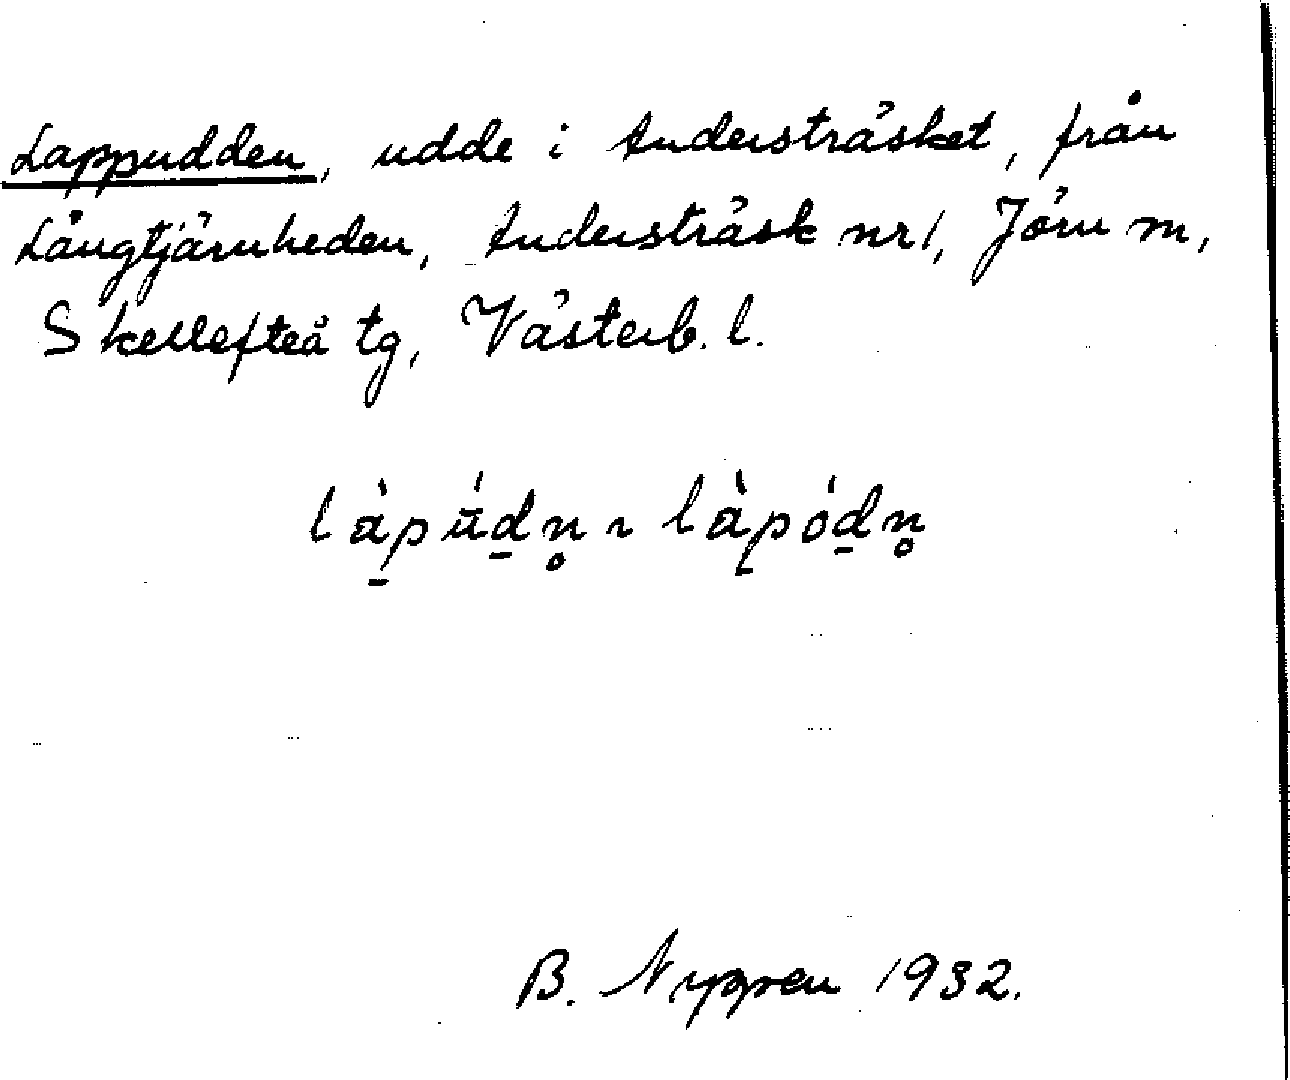 Lappudden, udde i Andersträsket, från
Långtjärnheden, Andersträsk nr 1, Jörn sn,
Skellefteå tg, Västerb. l.
là̱púḏn̥ ~ làpóḏn̥
B. Nygren 1932.